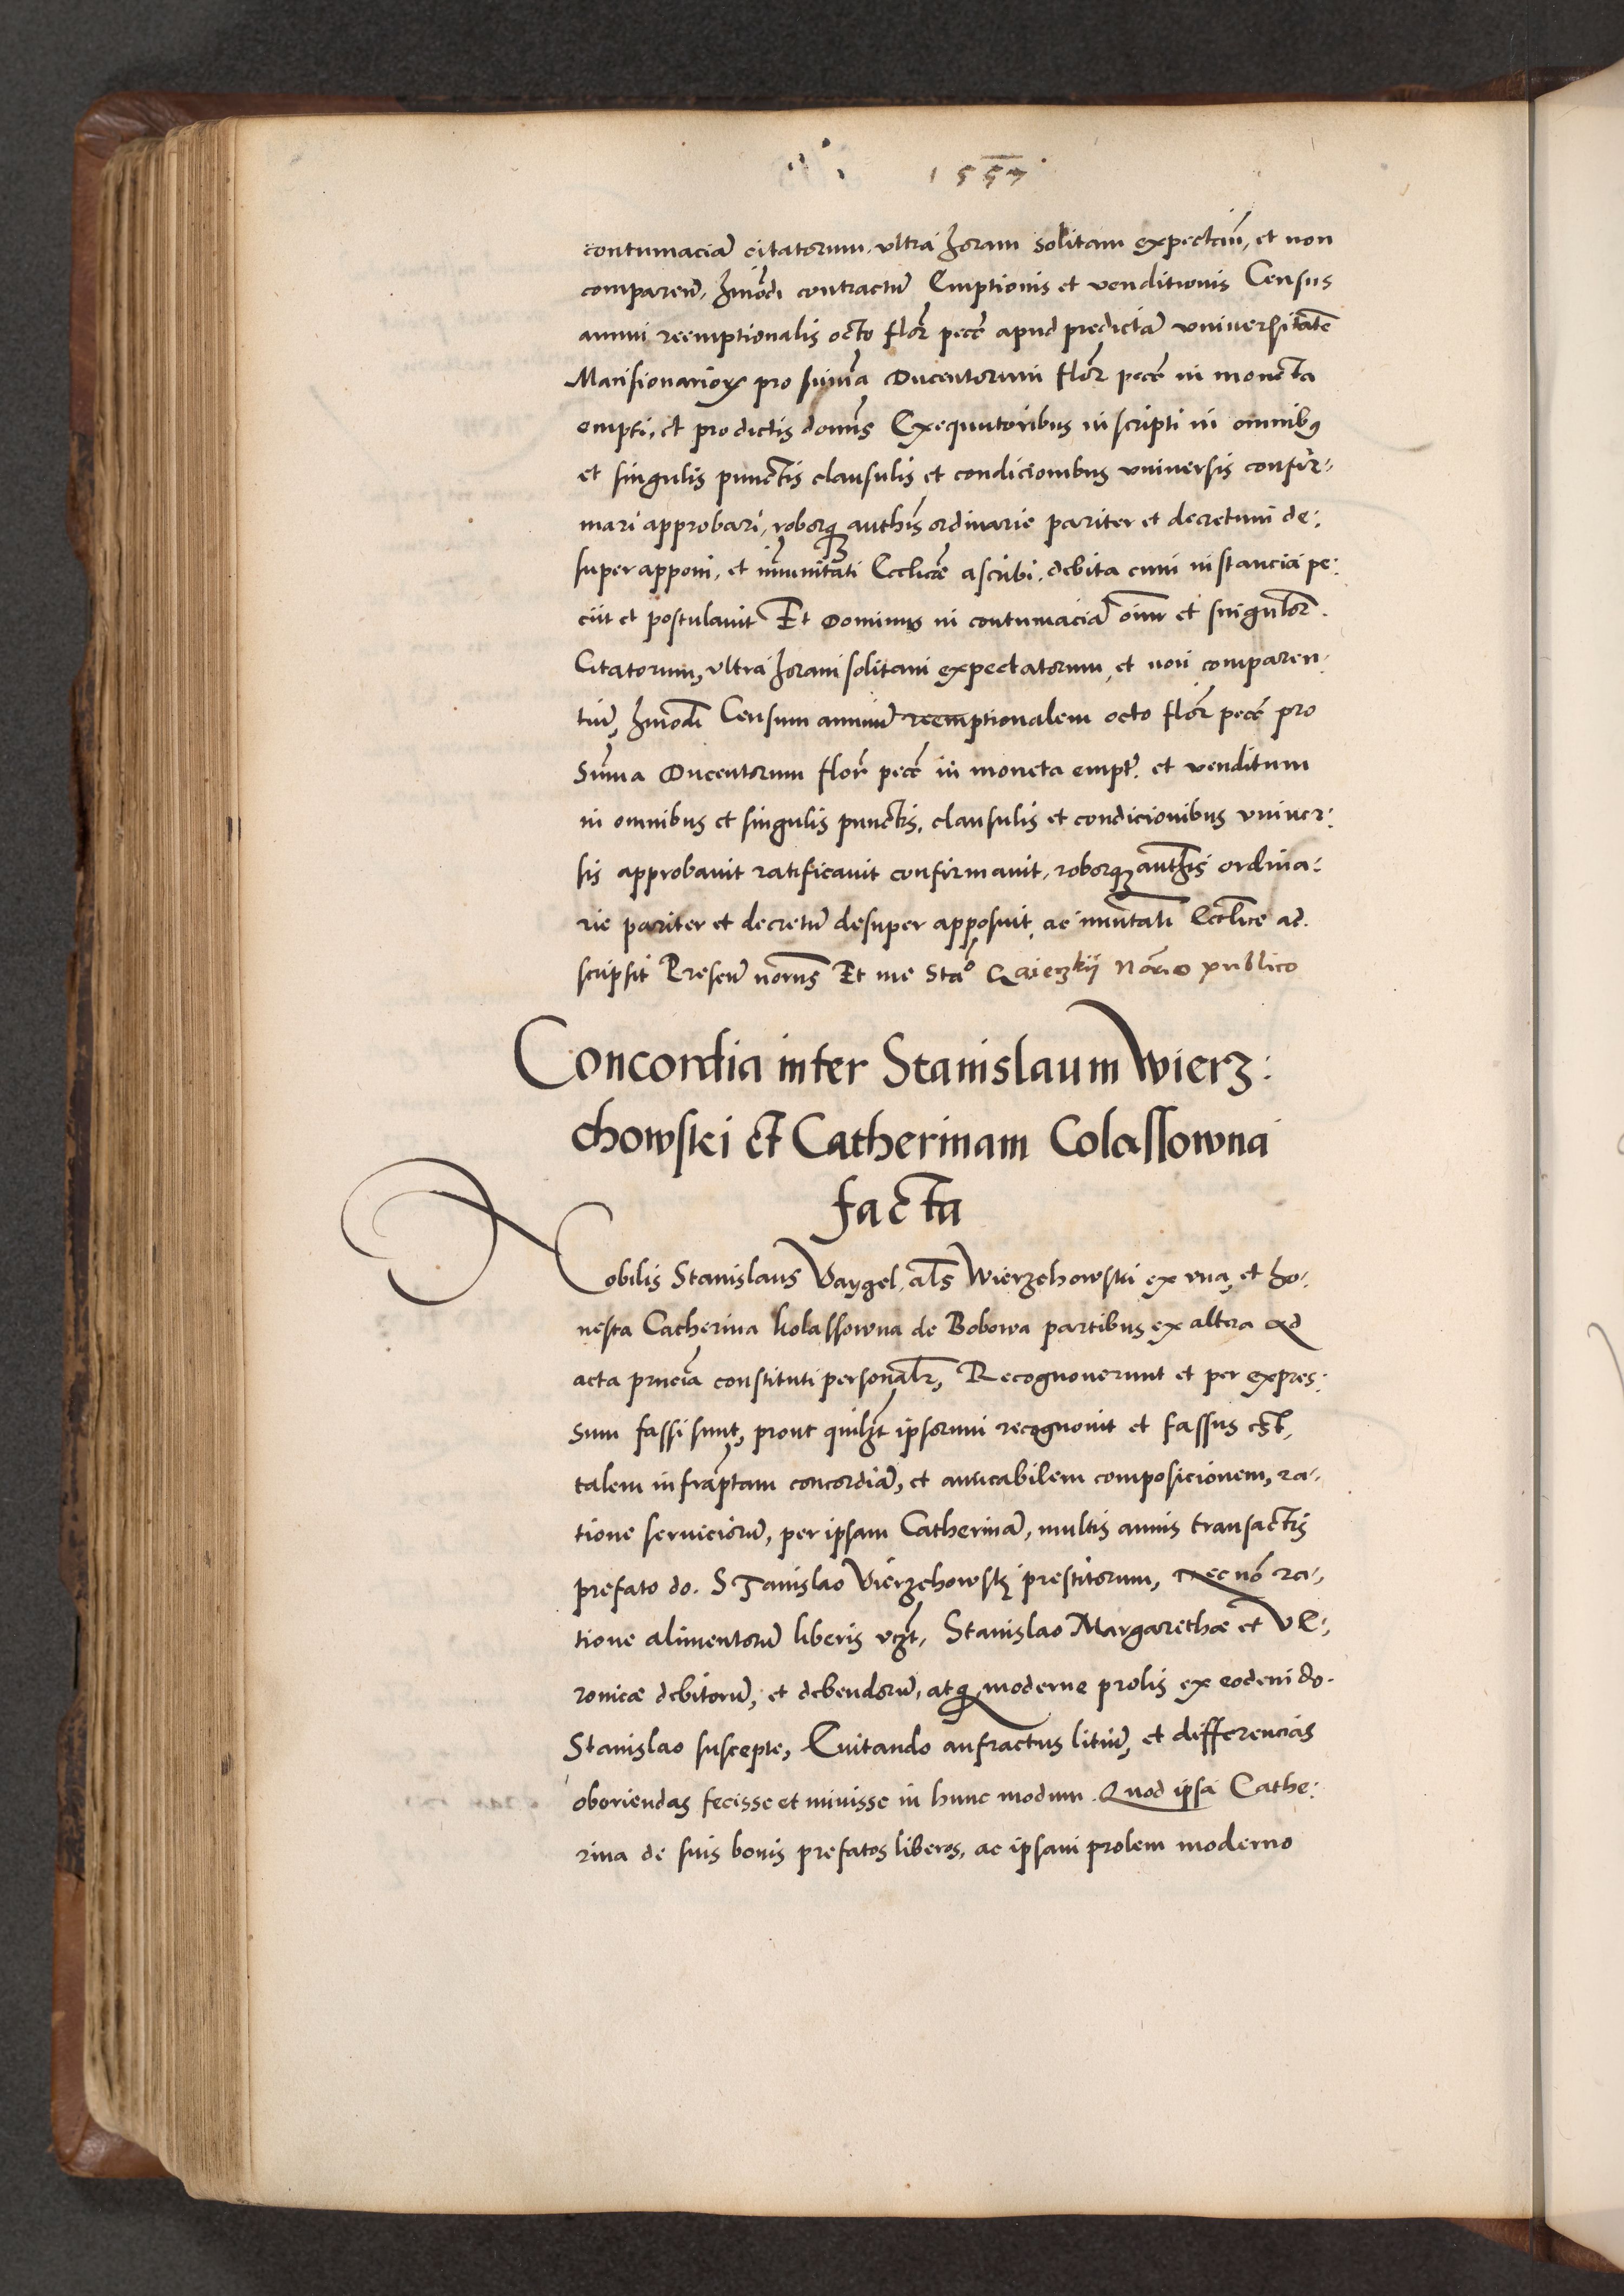 1557
contumaciã citatorum, vltra horam solitam expectañ, et non
compareñ, hm̃odi contractũ Emptionis et venditionis Census
annui reemptionalis octo flor̃ pecẽ apud predictã vniuersitatẽ
Mansionarioꝝ pro sum̃a Ducentorum flor̃ pecẽ in moneta
empti, et pro dictis domĩs Exequutoribus inscripti in omnibꝰ
et singulis punctis clausulis et condicionibus vniuersis confir-
mari approbari, roborqꝫ authis̃ ordinarie pariter et decretum de-
super apponi, et im̃unitati Ecclicẽ ascribi, debita cum instancia pe-
ciit et postulauit Et Dominus in contumaciã oĩm et singulor̃
Citatorum, vltra horam solitam expectatorum, et non comparen-
tiũ, hm̃odi Censum annuũ reemptionalem octo flor̃ pecẽ pro
Sum̃a Ducentorum flor̃ pecẽ in moneta empt̃ et venditum
in omnibus et singulis punctis, clausulis et condicionibus vniuer-
sis approbauit ratificauit confirmauit, roborqꝫ authis̃ ordina-
rie pariter et decretũ desuper apposuit, ac imũtati Ecclice ad
scripsit Preseñ norñs Et me Stã° Not̃rio publico
Concordia inter Stanislaum Wierz-
chowski et Catherinam Colassowna
facta
Nobilis Stanislaus Vaygel, als̃ Wierzchowski ex vna, et ho-
nesta Catherina Kolassowna de Bobowa partibus ex altera ad
acta prñcia constituti personalr̃, Recognouerunt et per expres-
sum fassi sunt, prout quilh̃t ipsorum recognouit et fassus est,
talem infrap̃tam concordiã, et amicabilem composicionem, ra-
tione seruiciorũ, per ipsam Catherinã, multis annis transactis
prefato do. Stanislao Vierzchowsky prestitorum, Nec nõ ra-
tione alimentorũ liberis vcz̃t, Stanislao Margarethæ et Ve-
ronicæ debitorũ, et debendorũ, atqꝫ moderne prolis ex eodem do.
Stanislao suscepte, Euitando anfractus litiũ, et differencias
oboriendas fecisse et iniuisse in hunc modum. Quod ipsa Cathe-
rina de suis bonis prefatos liberos, ac ipsam prolem moderno